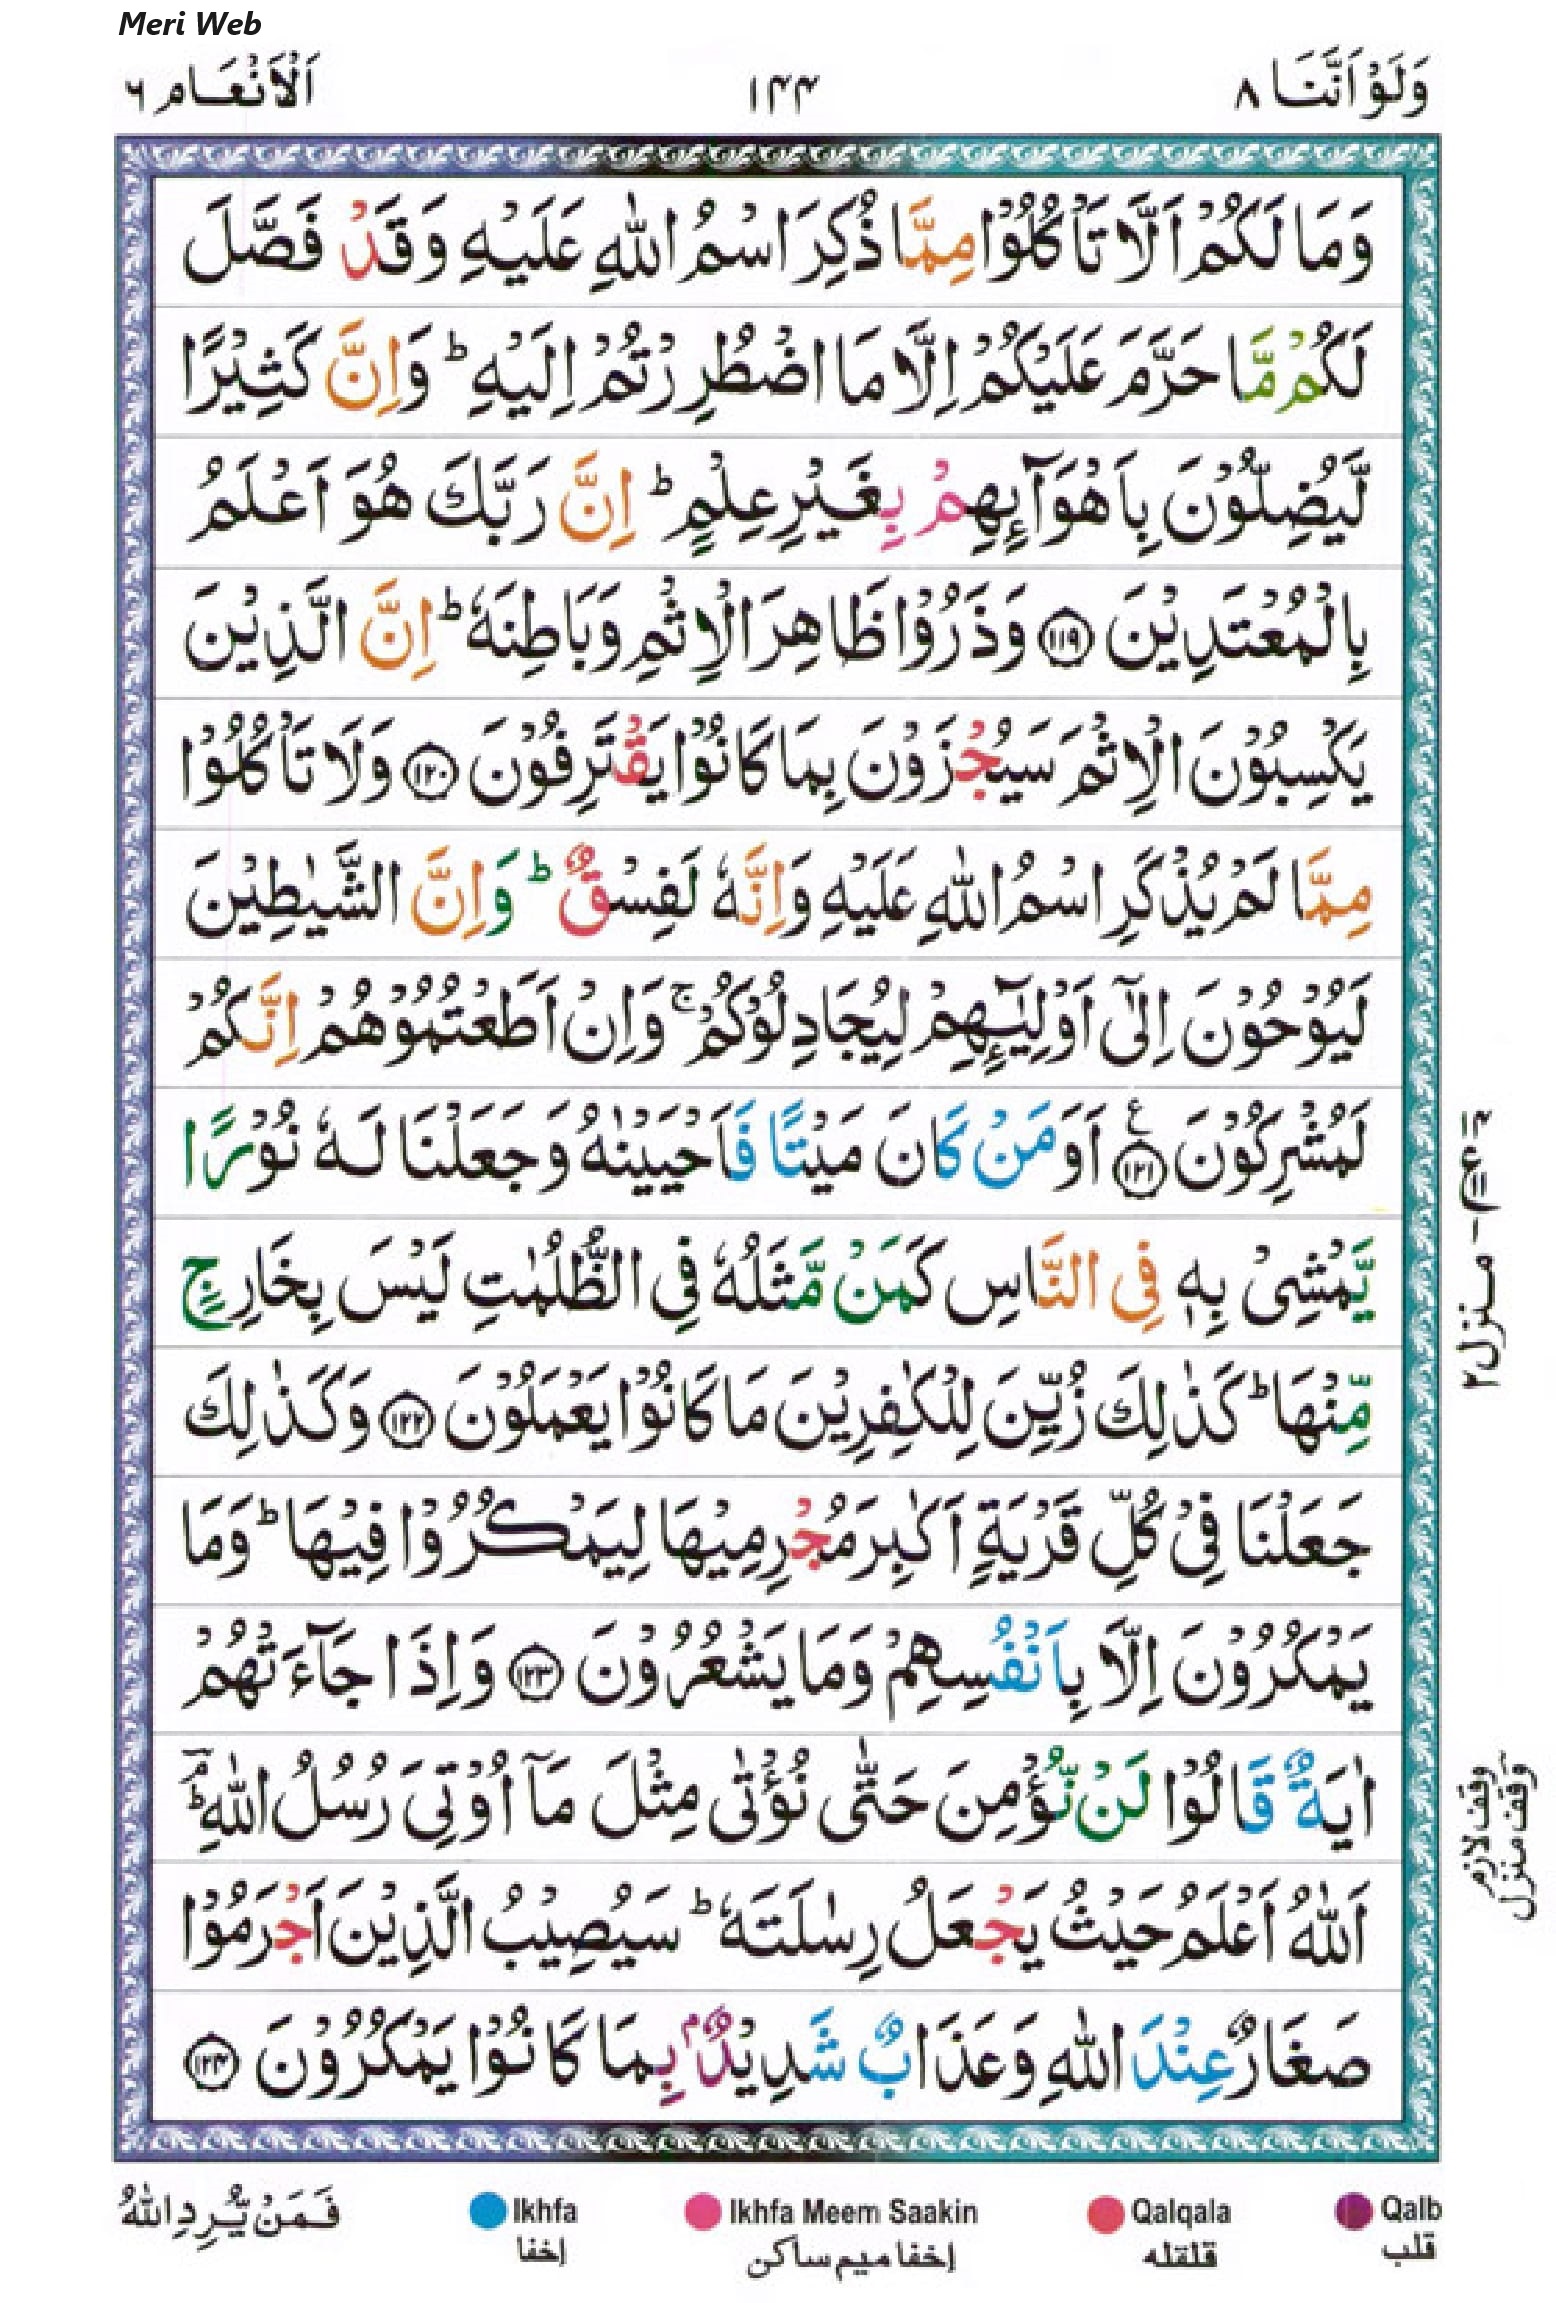 Meri Web
وَلَوْ اَنَّنَا ٨ ١٤٤ اَلْاَنْعَام ٦
وَمَا لَكُمْ اَلَّا تَاْكُلُوْا مِمَّا ذُكِرَ اسْمُ اللّٰهِ عَلَيْهِ وَقَدْ فَصَّلَ
لَكُمْ مَّا حَرَّمَ عَلَيْكُمْ اِلَّا مَا اضْطُرِرْتُمْ اِلَيْهِ ؕ وَاِنَّ كَثِيْرًا
لَّيُضِلُّوْنَ بِاَهْوَآئِهِمْ بِغَيْرِ عِلْمٍ ؕ اِنَّ رَبَّكَ هُوَ اَعْلَمُ
بِالْمُعْتَدِيْنَ ١١٩ وَذَرُوْا ظَاهِرَ الْاِثْمِ وَبَاطِنَهٗ ؕ اِنَّ الَّذِيْنَ
يَكْسِبُوْنَ الْاِثْمَ سَيُجْزَوْنَ بِمَا كَانُوْا يَقْتَرِفُوْنَ ١٢٠ وَلَا تَاْكُلُوْا
مِمَّا لَمْ يُذْكَرِ اسْمُ اللّٰهِ عَلَيْهِ وَاِنَّهٗ لَفِسْقٌ ؕ وَاِنَّ الشَّيٰطِيْنَ
لَيُوْحُوْنَ اِلٰٓى اَوْلِيٰٓـئِهِمْ لِيُجَادِلُوْكُمْ ۚ وَاِنْ اَطَعْتُمُوْهُمْ اِنَّكُمْ
لَمُشْرِكُوْنَ ١٢١ ع اَوَمَنْ كَانَ مَيْتًا فَاَحْيَيْنٰهُ وَجَعَلْنَا لَهٗ نُوْرًا
يَّمْشِىْ بِهٖ فِى النَّاسِ كَمَنْ مَّثَلُهٗ فِى الظُّلُمٰتِ لَيْسَ بِخَارِجٍ
مِّنْهَا ؕ كَذٰلِكَ زُيِّنَ لِلْكٰفِرِيْنَ مَا كَانُوْا يَعْمَلُوْنَ ١٢٢ وَكَذٰلِكَ
جَعَلْنَا فِىْ كُلِّ قَرْيَةٍ اَكٰبِرَ مُجْرِمِيْهَا لِيَمْكُرُوْا فِيْهَا ؕ وَمَا
يَمْكُرُوْنَ اِلَّا بِاَنْفُسِهِمْ وَمَا يَشْعُرُوْنَ ١٢٣ وَاِذَا جَآءَتْهُمْ
اٰيَةٌ قَالُوْا لَنْ نُّؤْمِنَ حَتّٰى نُؤْتٰى مِثْلَ مَآ اُوْتِىَ رُسُلُ اللّٰهِ ؕۘ
اَللّٰهُ اَعْلَمُ حَيْثُ يَجْعَلُ رِسٰلَتَهٗ ؕ سَيُصِيْبُ الَّذِيْنَ اَجْرَمُوْا
صَغَارٌ عِنْدَ اللّٰهِ وَعَذَابٌ شَدِيْدٌۢ بِمَا كَانُوْا يَمْكُرُوْنَ ١٢٤
منزل٢
وقف لازم
وقف منزل
فَمَنْ يُّرِدِ اللّٰهُ
Ikhfa Ikhfa Meem Saakin Qalqala Qalb
إخفا إخفا ميم ساكن قلقله قلب